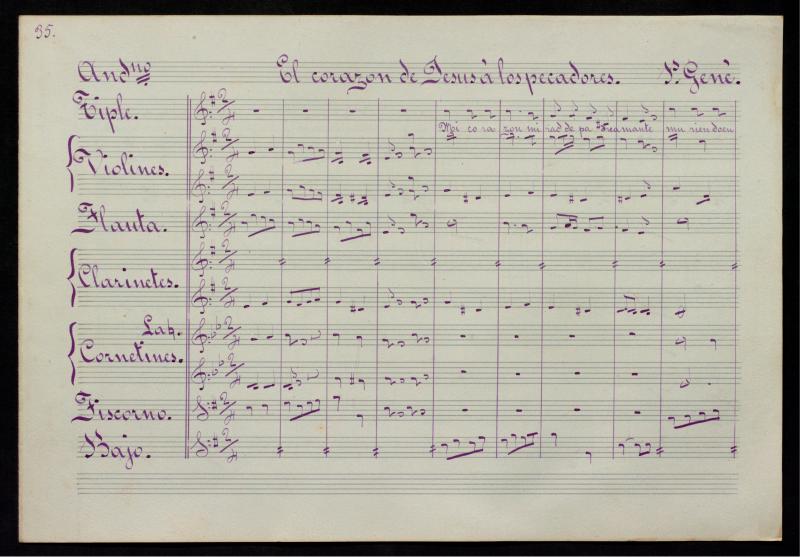 35.
Andno El corazon de Jesus á los pecadores. P. Gené.
Tiple.
Moi co ra zon mi rad de pa dre amante mu rien do en
Violines.
Flauta.
Clarinetes.
La♮.
Cornetines.
Fiscorno.
Bajo.